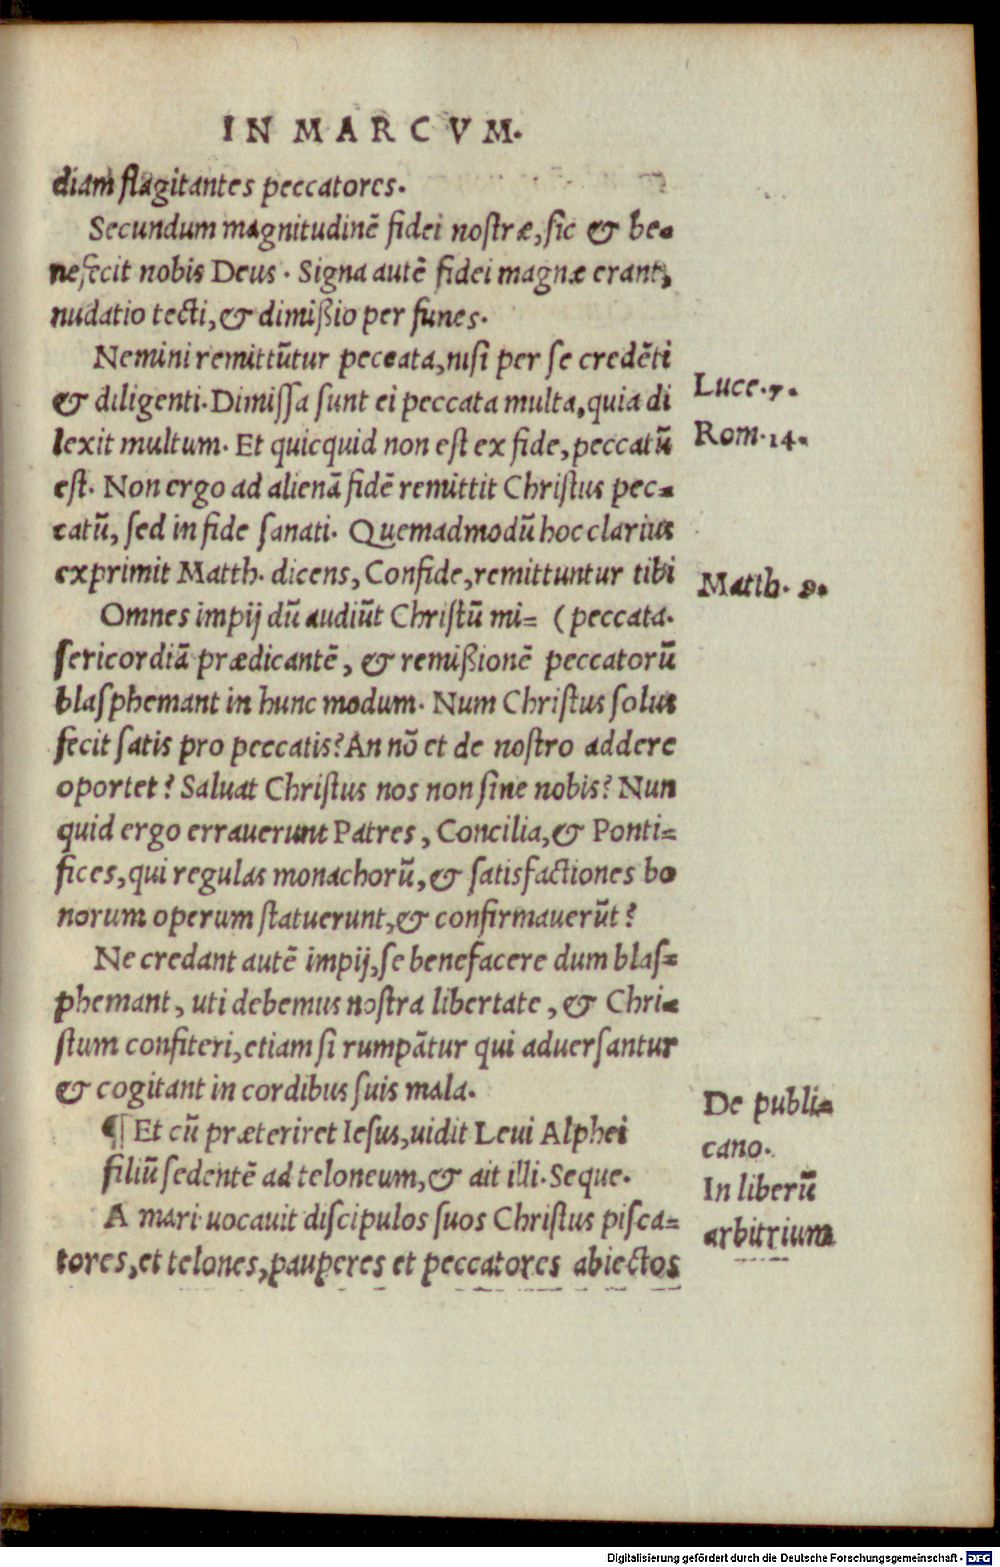 IN MARCVM.
diam flagitantes peccatores.
Secundum magnitudinē fidei nostræ, sic & be-
nefecit nobis Deus. Signa autē fidei magnæ erant,
nudatio tecti, & dimißio per funes.
Nemini remittūtur peccata, nisi per se credēti
& diligenti. Dimissa sunt ei peccata multa, quia di
lexit multum. Et quicquid non est ex fide, peccatū
est. Non ergo ad alienā fidē remittit Christus pec-
catū, sed in fide sanati. Quemadmodū hoc clarius
exprimit Matth. dicens, Confide, remittuntur tibi
Omnes impij dū audiūt Christū mi= (peccata.
sericordiā prædicantē, & remißionē peccatorū
blasphemant in hunc modum. Num Christus solus
fecit satis pro peccatis? An nō et de nostro addere
oportet? Saluat Christus nos non sine nobis? Nun
quid ergo errauerunt Patres, Concilia, & Ponti=
fices, qui regulas monachorū, & satisfactiones bo
norum operum statuerunt, & confirmauerūt?
Ne credant autē impij, se benefacere dum blas=
phemant, uti debemus nostra libertate, & Chri-
stum confiteri, etiam si rumpātur qui aduersantur
& cogitant in cordibus suis mala.
¶ Et cū præteriret Iesus, uidit Leui Alphei
filiū sedentē ad teloneum, & ait illi. Seque.
A mari uocauit discipulos suos Christus pisca=
tores, et telones, pauperes et peccatores abiectos
Luce. 7.
Rom. 14.
Matth. 9.
De publi-
cano.
In liberū
arbitrium
Digitalisierung gefördert durch die Deutsche Forschungsgemeinschaft - DFG